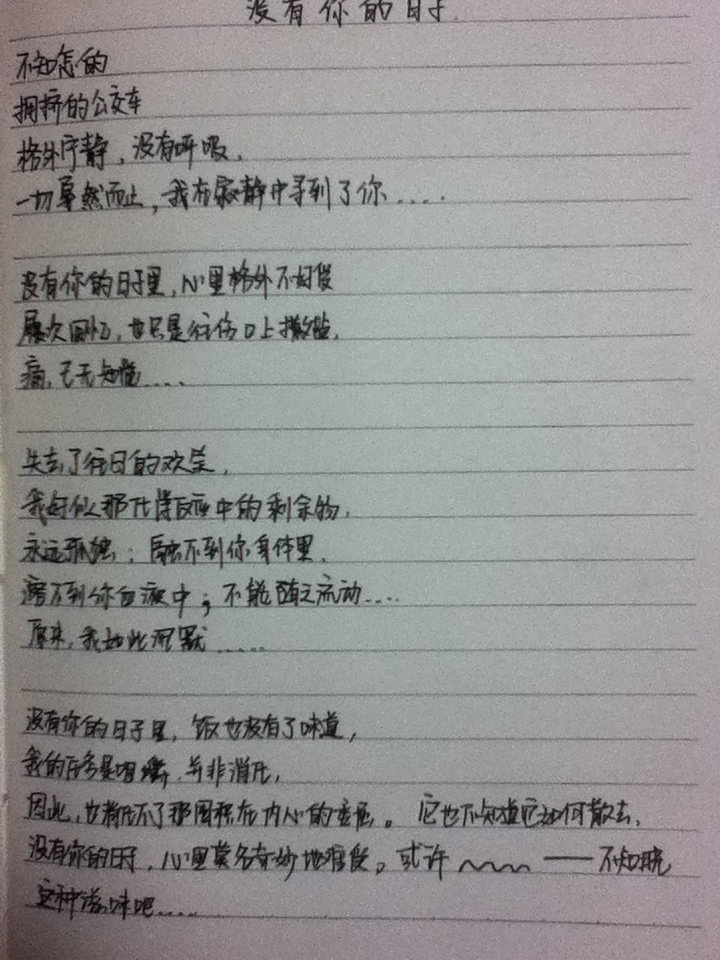 没有你的日子
不知怎的
拥挤的公交车
格外宁静，没有呼吸，
一切戛然而止，我在寂静中寻到了你.....
没有你的日子里，心里格外不好受
屡次回忆，也只是往伤口上撒盐，
痛，已无知觉....
失去了往日的欢笑，
我好似那化学反应中的剩余物，
永远孤独；融不到你身体里，
溶不到你血液中；不能随之流动....
原来，我如此沉默.....
没有你的日子里，饭也没有了味道，
我的任务是咀嚼，并非消化，
因此，也消化不了那囤积在内心的。它也不知道它如何散去，
没有你的日子，心里莫名奇妙地难受。或许——不知晓
这种滋味吧.....